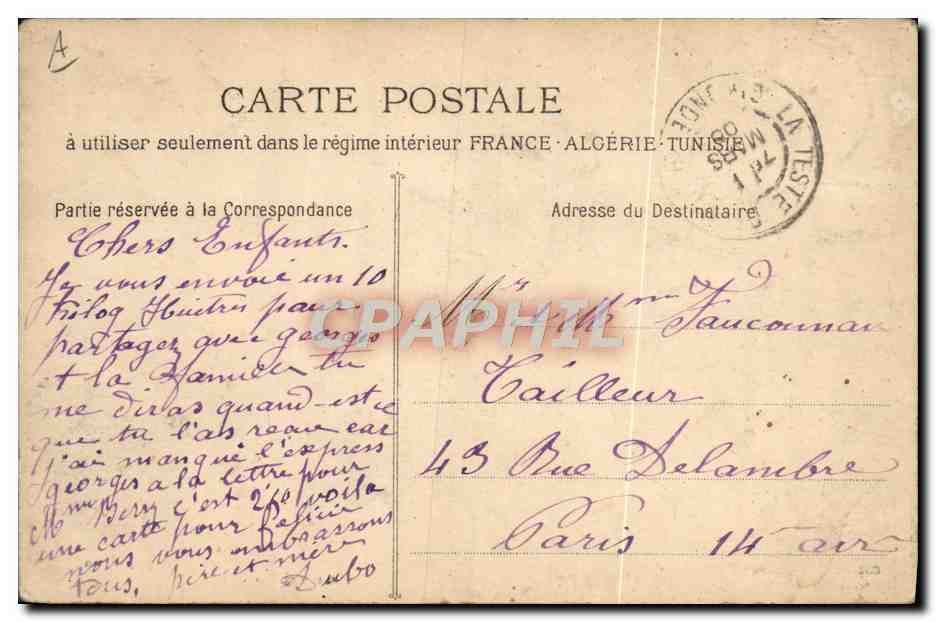 A
CARTE POSTALE
à utiliser seulement dans le régime intérieur FRANCE · ALGÉRIE · TUNISIE
LA TESTE
7E 1
MARS
05
GIRONDE
Partie réservée à la Correspondance
Adresse du Destinataire
Chers Enfants.
Je vous envoie un 10
kilog Huitres pour
partagez avec georges
et la famille tu
me diras quand est ce
que tu l'as reçue car
j'ai manqué l'express
georges a la lettre pour
Mme Berry c'est 2/0 voila
une carte pour Felicie
nous vous embrassons
tous, père et mère
Dubo
Mr et Mme Fauconnau
Tailleur
43 Rue Delambre
Paris 14 arr
CPAPHIL